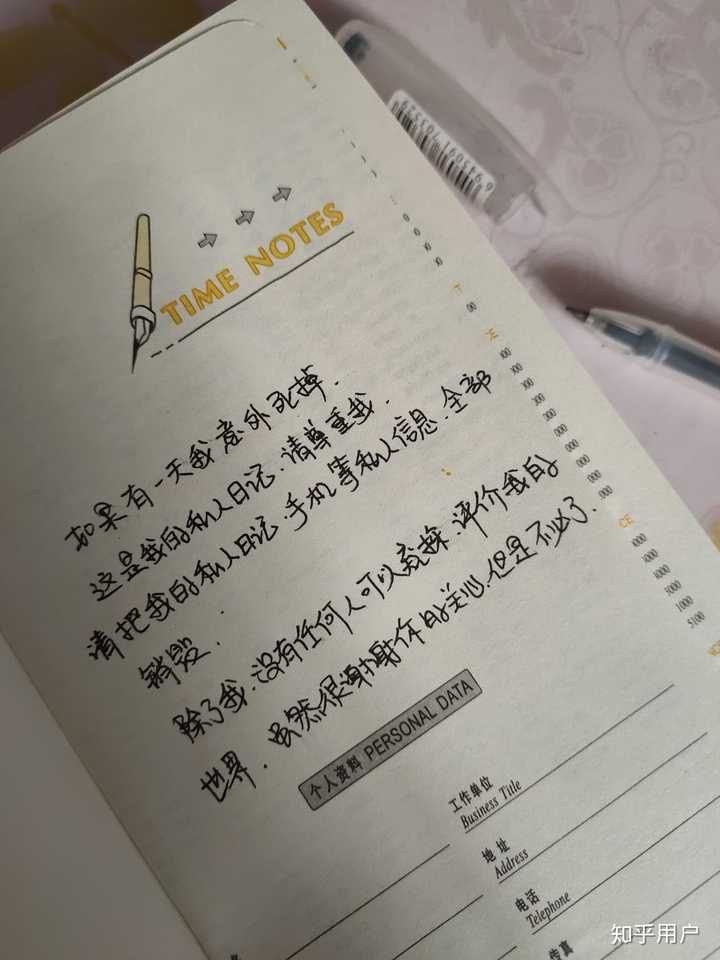 TIME NOTES
如果有一天我意外死掉.
这是我的私人日记.请尊重我.
请把我的私人日记.手机等私人信息.全部
销毁.
除了我.没有任何人可以窥探.评价我的
世界.虽然很谢谢你的关心.但是不必了.
个人资料 PERSONAL DATA
工作单位
Business Title
地址
Address
电话
Telephone
传真
6 943091 703329
知乎用户